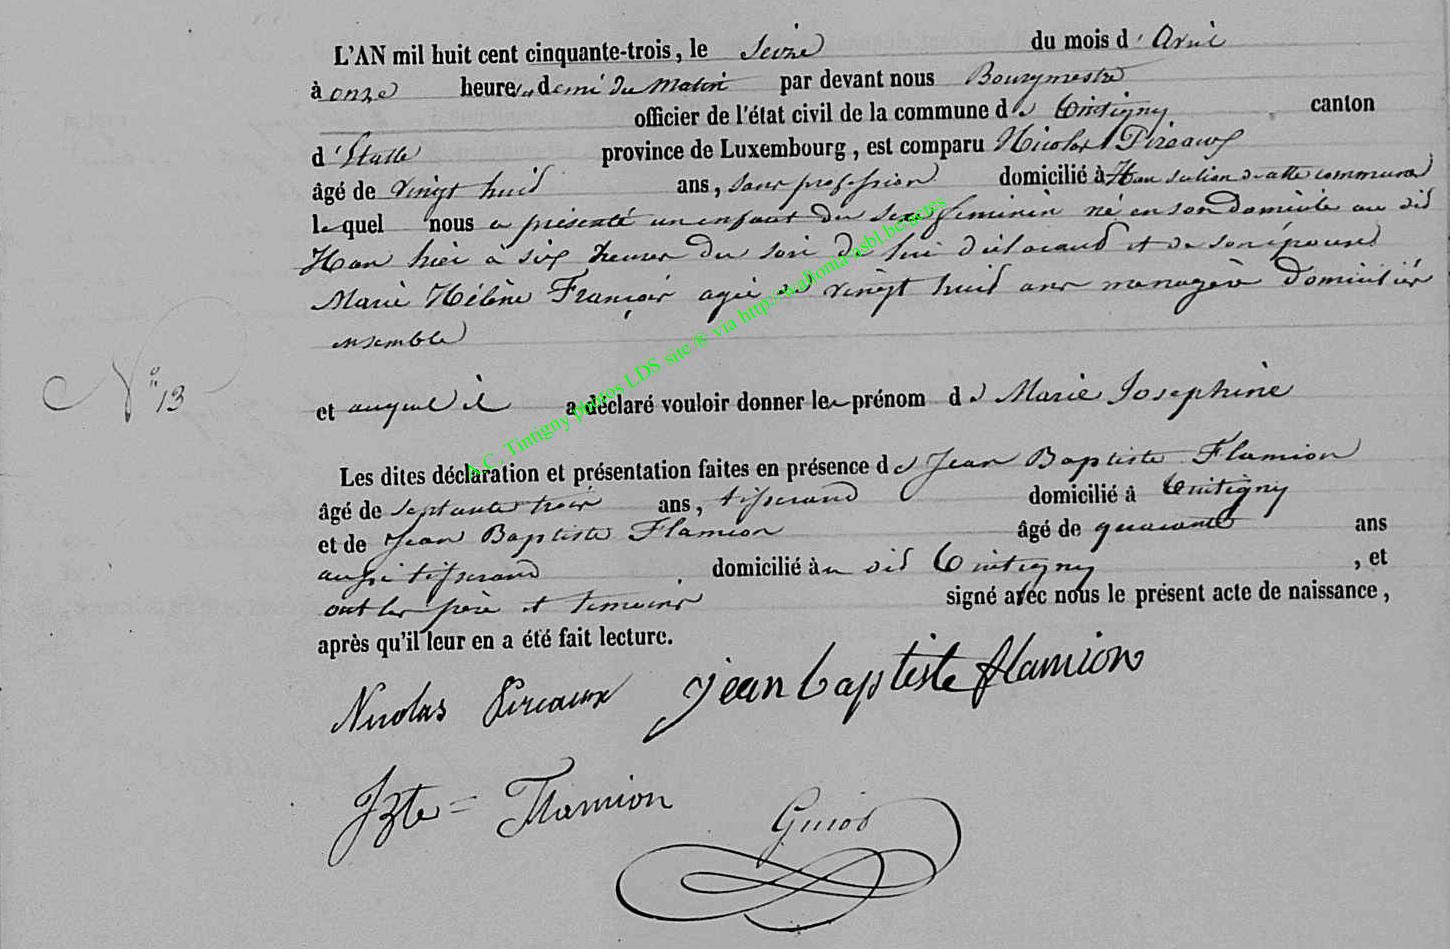 L'AN mil huit cent cinquante-trois, le Seize du mois d'Avril
à onze heures et demi du Matin par devant nous Bourgmestre
officier de l'état civil de la commune de Tintigny canton
d'Etalle province de Luxembourg, est comparu Nicolas Pireaux
âgé de vingt huit ans, sans profession domicilié à Han section de cette commune
lequel nous a présenté un enfant du sexe feminin né en son domicile au dit
Han hier à six heures du soir de lui déclarant et de son épouse
Marie Hélène François agée de vingt huit ans menagère domiciliés
ensemble
N° 13
et auquel il a déclaré vouloir donner le prénom de Marie Josephine
Les dites déclaration et présentation faites en présence de Jean Baptiste Flamion
âgé de septante trois ans, tisserand domicilié à Tintigny
et de Jean Baptiste Flamion âgé de quarante ans
aussi tisserand domicilié au dit Tintigny, et
ont les père et temoins signé avec nous le présent acte de naissance,
après qu'il leur en a été fait lecture.
Nicolas Pireaux jean baptiste flamion
JBte = Flamion
Guiot
A.C. Tintigny photos LDS site ® via http://wallonia-asbl.be/actes